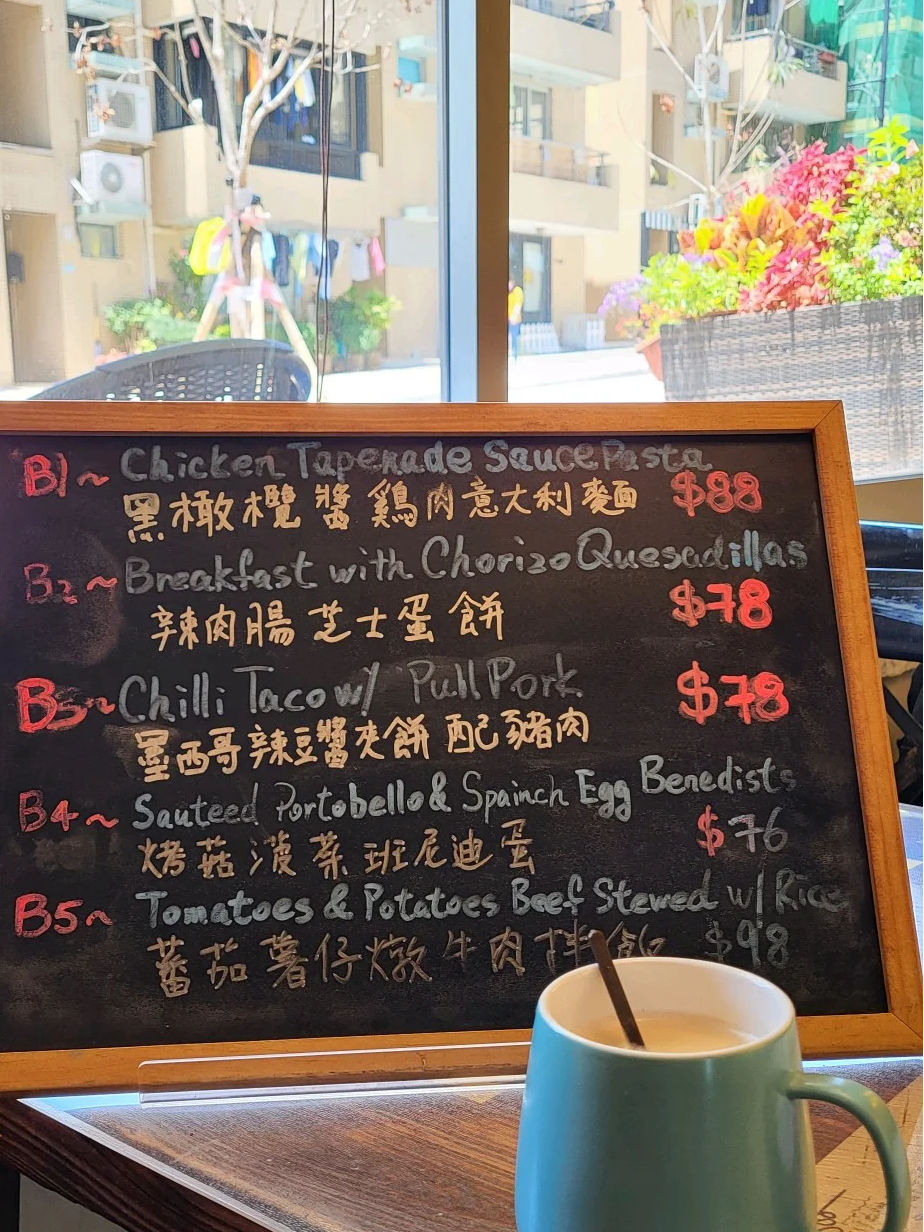 B1~ Chicken Tapenade Sauce Pasta
黑橄欖醬鷄肉意大利麵 $88
B2~ Breakfast with Chorizo Quesadillas
辣肉腸芝士蛋餅 $78
B3~ Chilli Taco w/ Pull Pork
墨西哥辣豆醬夾餅配豬肉 $78
B4~ Sauteed Portobello & Spainch Egg Benedists
烤菇菠菜班尼迪蛋 $76
B5~ Tomatoes & Potatoes Beef Stewed w/ Rice
蕃茄薯仔燉牛肉拌飯 $98